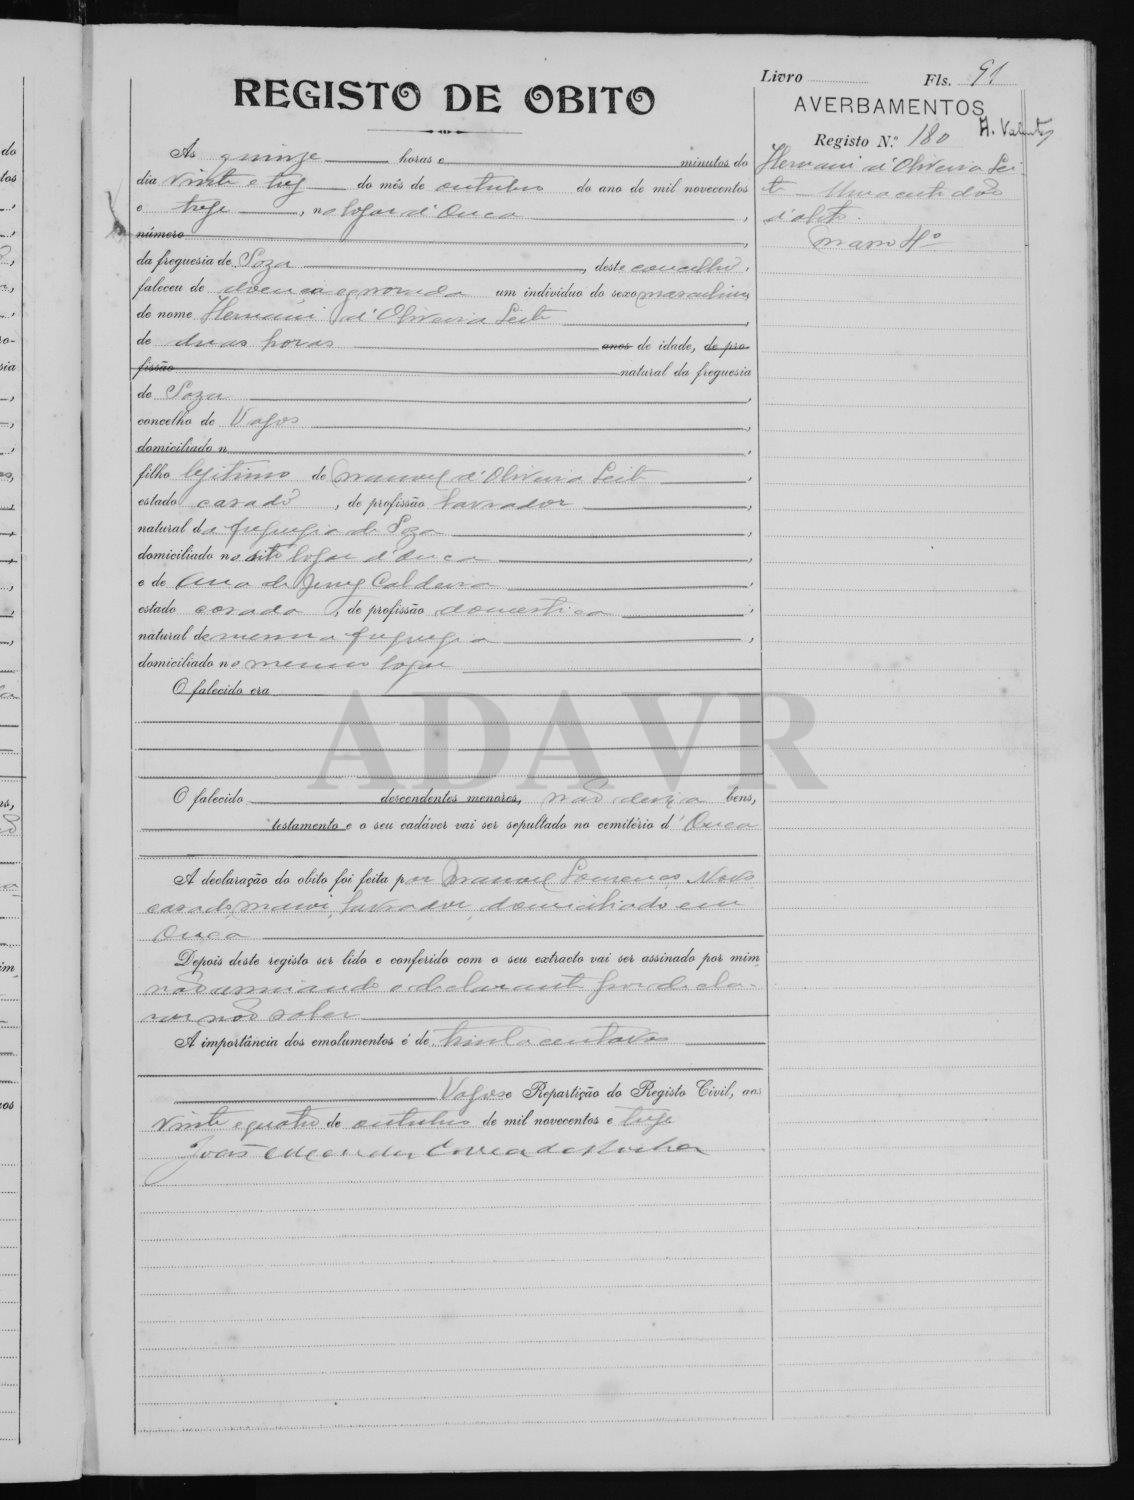 Livro Fls. 91
REGISTO DE OBITO
AVERBAMENTOS
Registo N.º 180
Hernani d'Oliveira Lei-
te
d'obito.
Maço 4º
As quinze horas e minutos do
dia vinte e trez do mês de outubro do ano de mil novecentos
e treze, no logar d'Ouca,
número
da freguesia de Soza, deste concelho,
faleceu de doença ignorada um indivíduo do sexo masculino,
de nome Hernani d'Oliveira Leite,
de duas horas anos de idade, de pro-
fissão natural da freguesia
de Soza,
concelho de Vagos,
domiciliado n
filho legitimo de Manuel d'Oliveira Leite,
estado casado, de profissão lavrador,
natural da freguezia de Soza,
domiciliado no dito logar d'Ouca,
e de Ana de Jesus Caldeira,
estado casada, de profissão domestica,
natural da mesma freguezia,
domiciliado no mesmo logar
O falecido era
ADAVR
O falecido descendentes menores, não deixa bens,
testamento e o seu cadáver vai ser sepultado no cemitério d'Ouca
A declaração do obito foi feita por Manuel Lourenço Novo
casado, maior, lavrador, domiciliado em
Ouca
Depois deste registo ser lido e conferido com o seu extracto vai ser assinado por mim
não assinando o declarante por decla-
rar não saber
A importância dos emolumentos é de trinta centavos
Vagos e Repartição do Registo Civil, aos
vinte e quatro de outubro de mil novecentos e treze
João Mendes Correa da Rocha